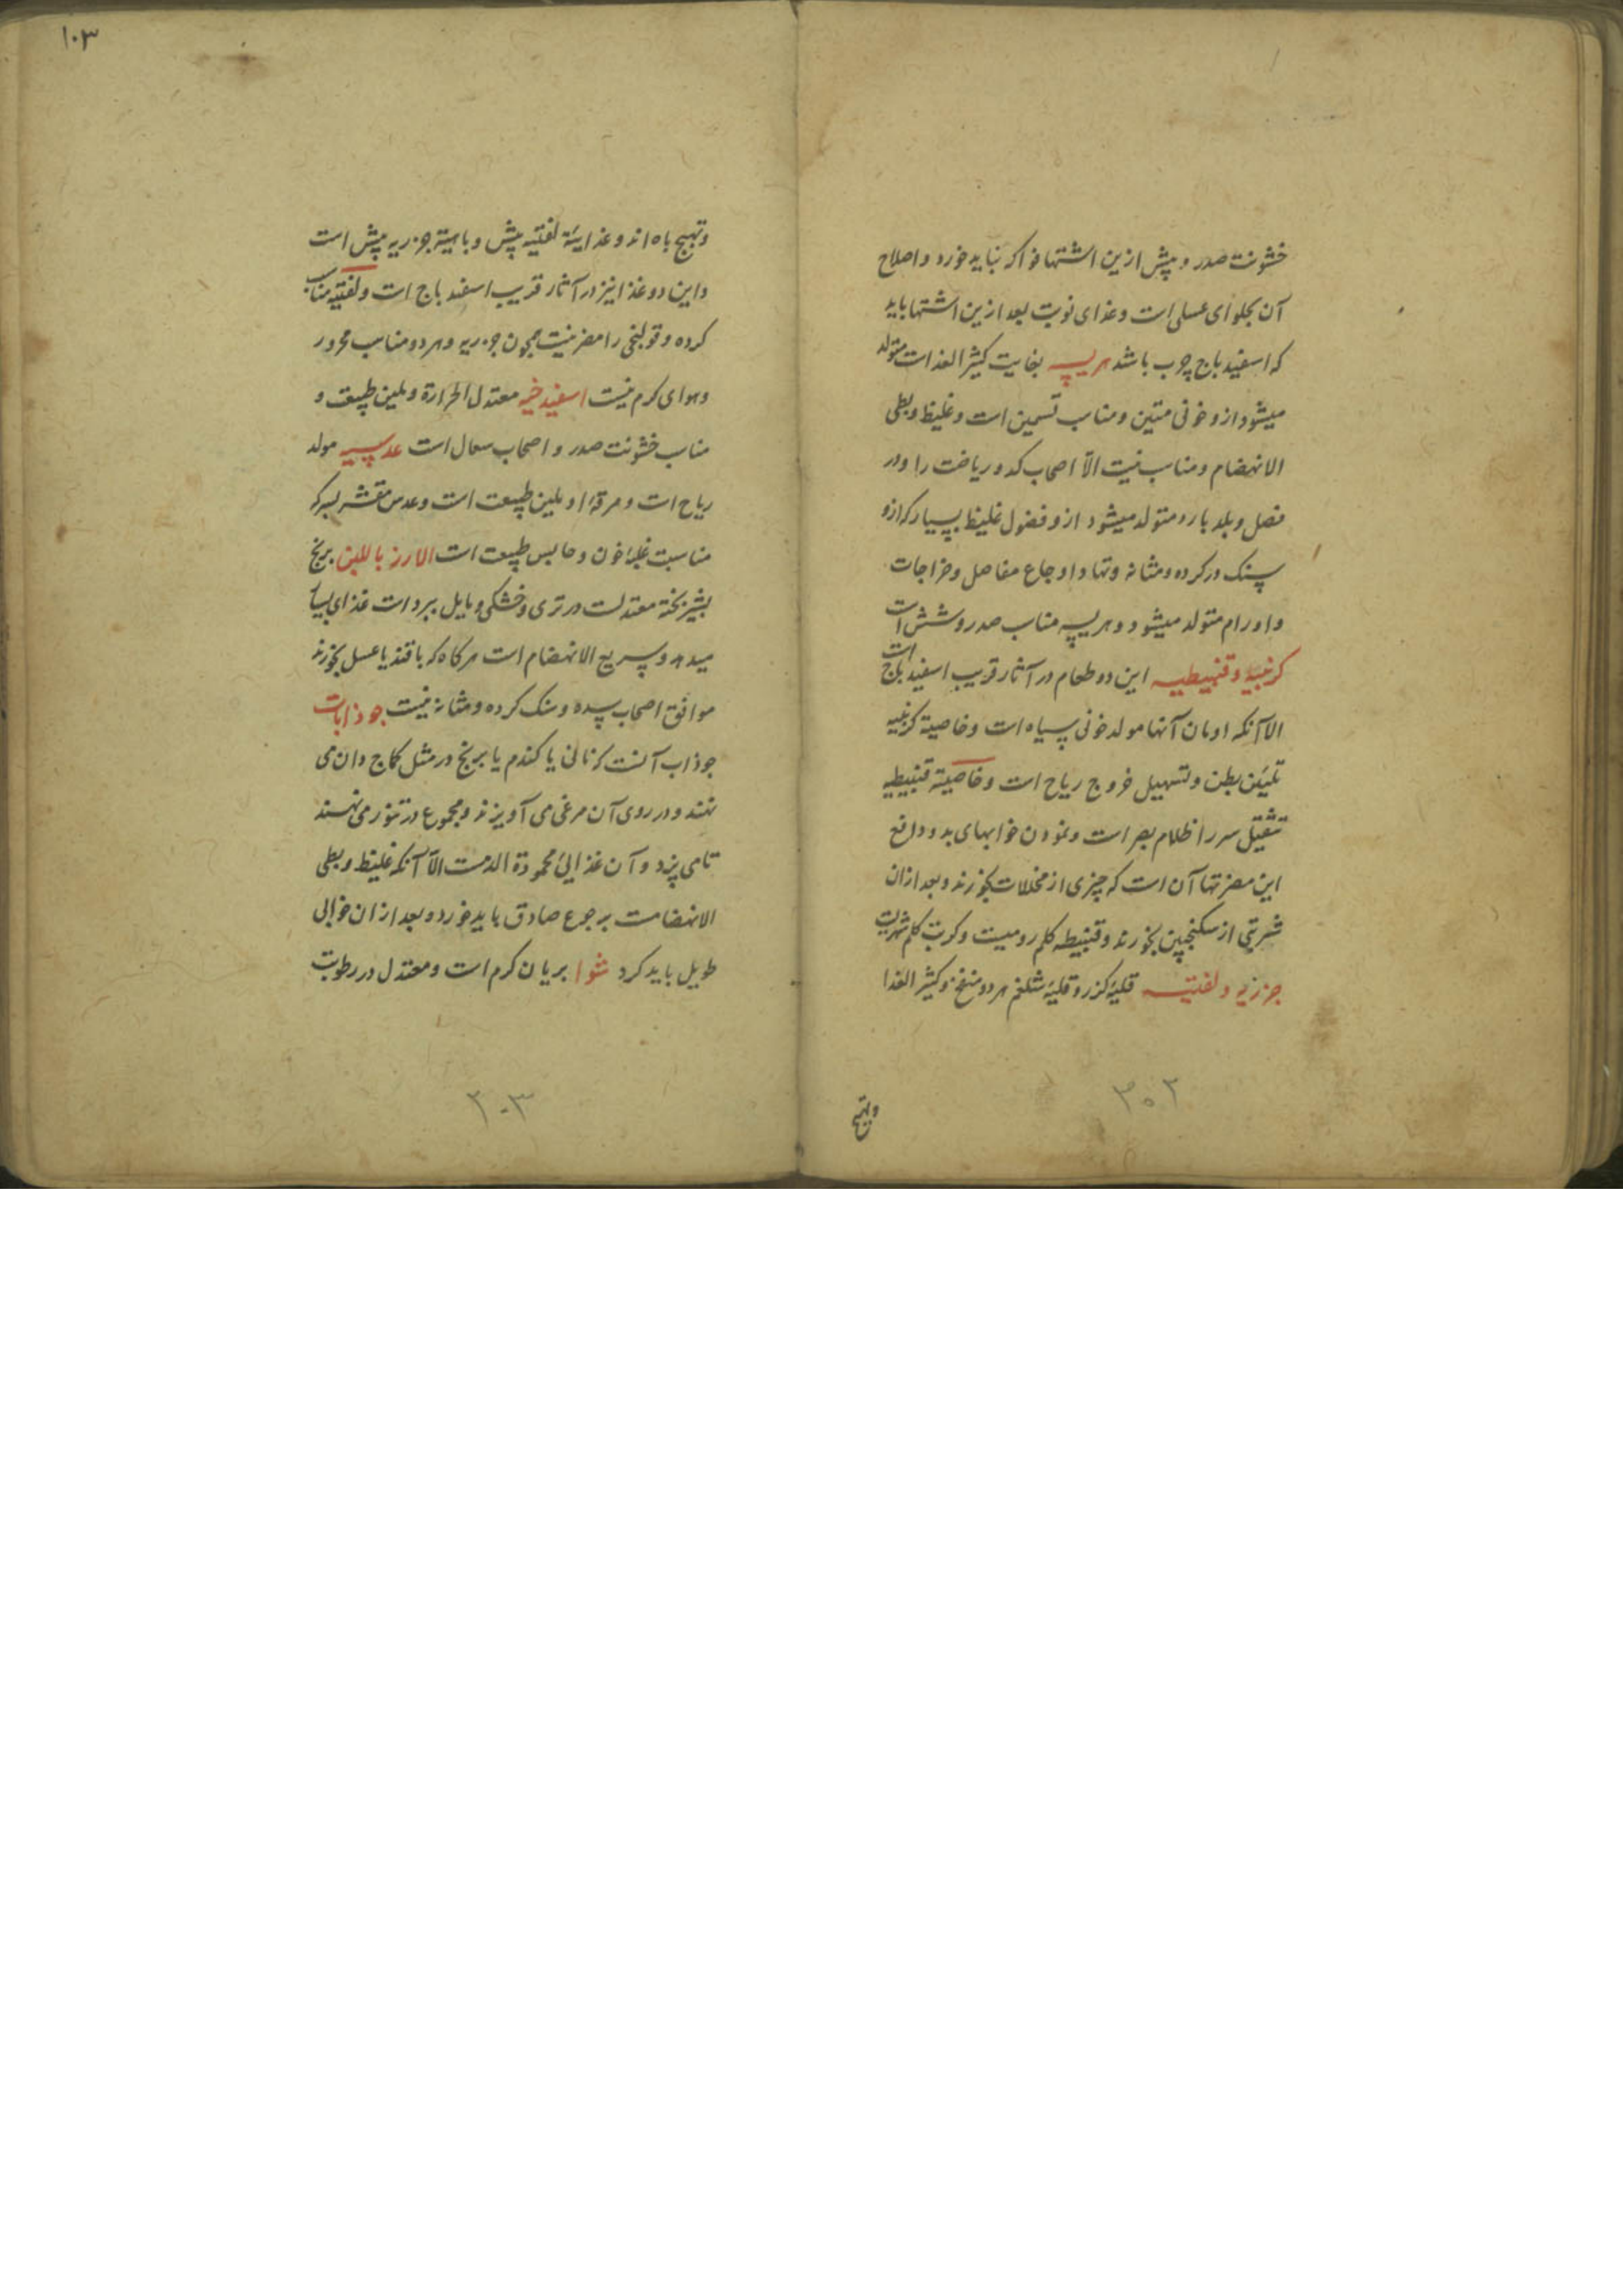 خشونت صدر و پیش ازین اشتها فواکه نباید خورد و اصلاح
آن بحلوای عسلی است و غذای نوبت بعد ازین اشتها باید
که اسفیدباج چرب باشد هریسه بغایت کثیر الغذاست متولد
میشود ازو خونی متین و مناسب تسمین است و غلیظ و بطی
الانهضام و مناسب نیست الّا اصحاب کد و ریاضت را و در
فصل و بلد بارد متولد میشود ازو فضول غلیظ بسیار که ازو
سنک در کرده و مثانه و تبها و اوجاع مفاصل و خراجات
و اورام متولد میشود و هریسه مناسب صدر و شش است
کرنبیه و قنبیطیه این دو طعام در آثار قریب اسفیدباج است
الا آنکه ادمان آنها مولد خونی سیاه است و خاصیة کرنبیه
تلیین بطن و تسهیل خروج ریاح است و خاصیة قنبیطیه
تثقیل سر و اظلام بصر است و نمودن خوابهای بد و دافع
این مضرتها آن است که چیزی از مخللات بخورند و بعد ازان
شربتی از سکنجبین بخورند و قنبیطه کلم رومیست و کرنب کلم شهریست
جزریه و لفتیه قلیهٔ کزر و قلیهٔ شلغم هر دو منفخ و کثیر الغذا
وتهیج
۲۰۲
۱۰۳
وتهیج باه اند و غذاییّة لفتیه بیش و باهیة جزریه بیش است
و این دو غذا نیز در آثار قریب اسفیدباج است و لفتیه مناسب
کرده و قولنجی را مضر نیست همچون جزریه و هر دو مناسب محرور
و هوای کرم نیست اسفیدخیه معتدل الحرارة و ملین طبیعت و
مناسب خشونت صدر و اصحاب سعال است عدسیه مولد
ریاح است و مرقهٔ او ملین طبیعت است و عدس مقشر بسرکه
مناسبت غلبهٔ خون و حابس طبیعت است الارز باللبن برنج
بشیر پخته معتدلست در تری و خشکی و مایل ببرد است غذای بسیار
میدهد و سریع الانهضام است هرکاه که با قند یا عسل بخورند
موافق اصحاب سده و سنک کرده و مثانه نیست جوذابات
جوذاب آنست که نانی یا کندم یا برنج در مثل کماج دان می
نهند و در روی آن مرغی می آویزند و مجموع در تنور می نهند
تا می پزد و آن غذایی محمودة الدمست الّا آنکه غلیظ و بطی
الانهضامست بر جوع صادق باید خورد و بعد ازان خوابی
طویل باید کرد شوا بریان کرم است و معتدل در رطوبت
۲۰۳